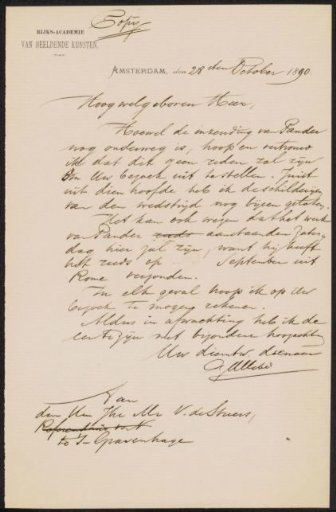 Copij
RIJKS-ACADEMIE
VAN BEELDENDE KUNSTEN.
AMSTERDAM, den 28sten October 1890
Hoogwelgeboren Heer,
Hoewel de inzending van Pander
nog onderweg is, hoop en vertrouw
ik dat dit geen reden zal zijn
om Uw bezoek uit te stellen. Juist
uit dien hoofde heb ik de schilderijen
van den wedstrijd nog bijeen gelaten.
Het kan ook wezen dat het werk
van Pander reeds aanstaanden Zater-
dag hier zal zijn, want hij heeft
het reeds op September uit
Rome verzonden.
In elk geval hoop ik op Uw
bezoek te mogen rekenen.
Aldus in afwachting heb ik de
eer te zijn met bijzondere hoogachting
Uw dienstw. dienaar
Allebé
Aan
den Heer Jhr Mr V. de Stuers,
Referendaris
te 's-Gravenhage